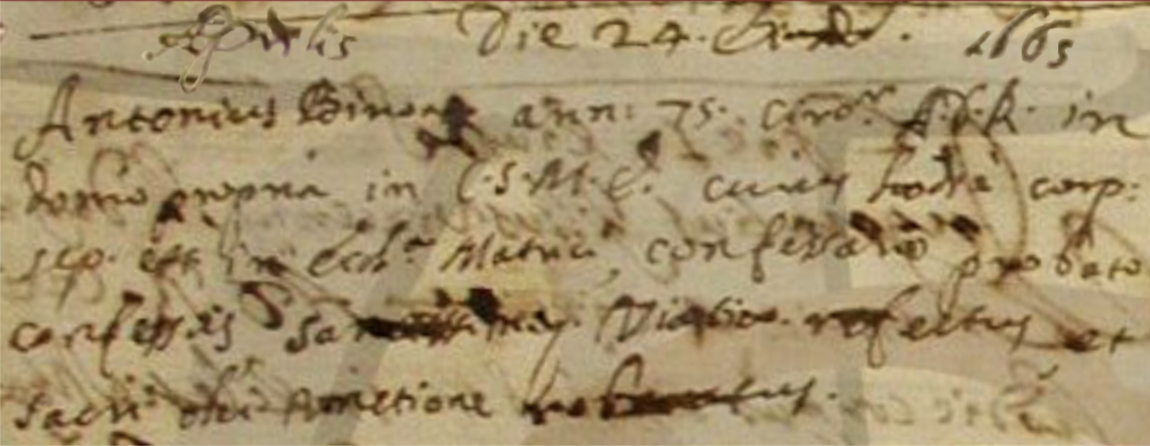 Aprilis Die 24. 1665
Antonius ann: 75. in
domo propria in C.S.M.E. cuius hodie corp:
sep. est in eccl.a Matrici, confessario probato
confessus Viatico refectus et
sacri olei unctione roboratus.